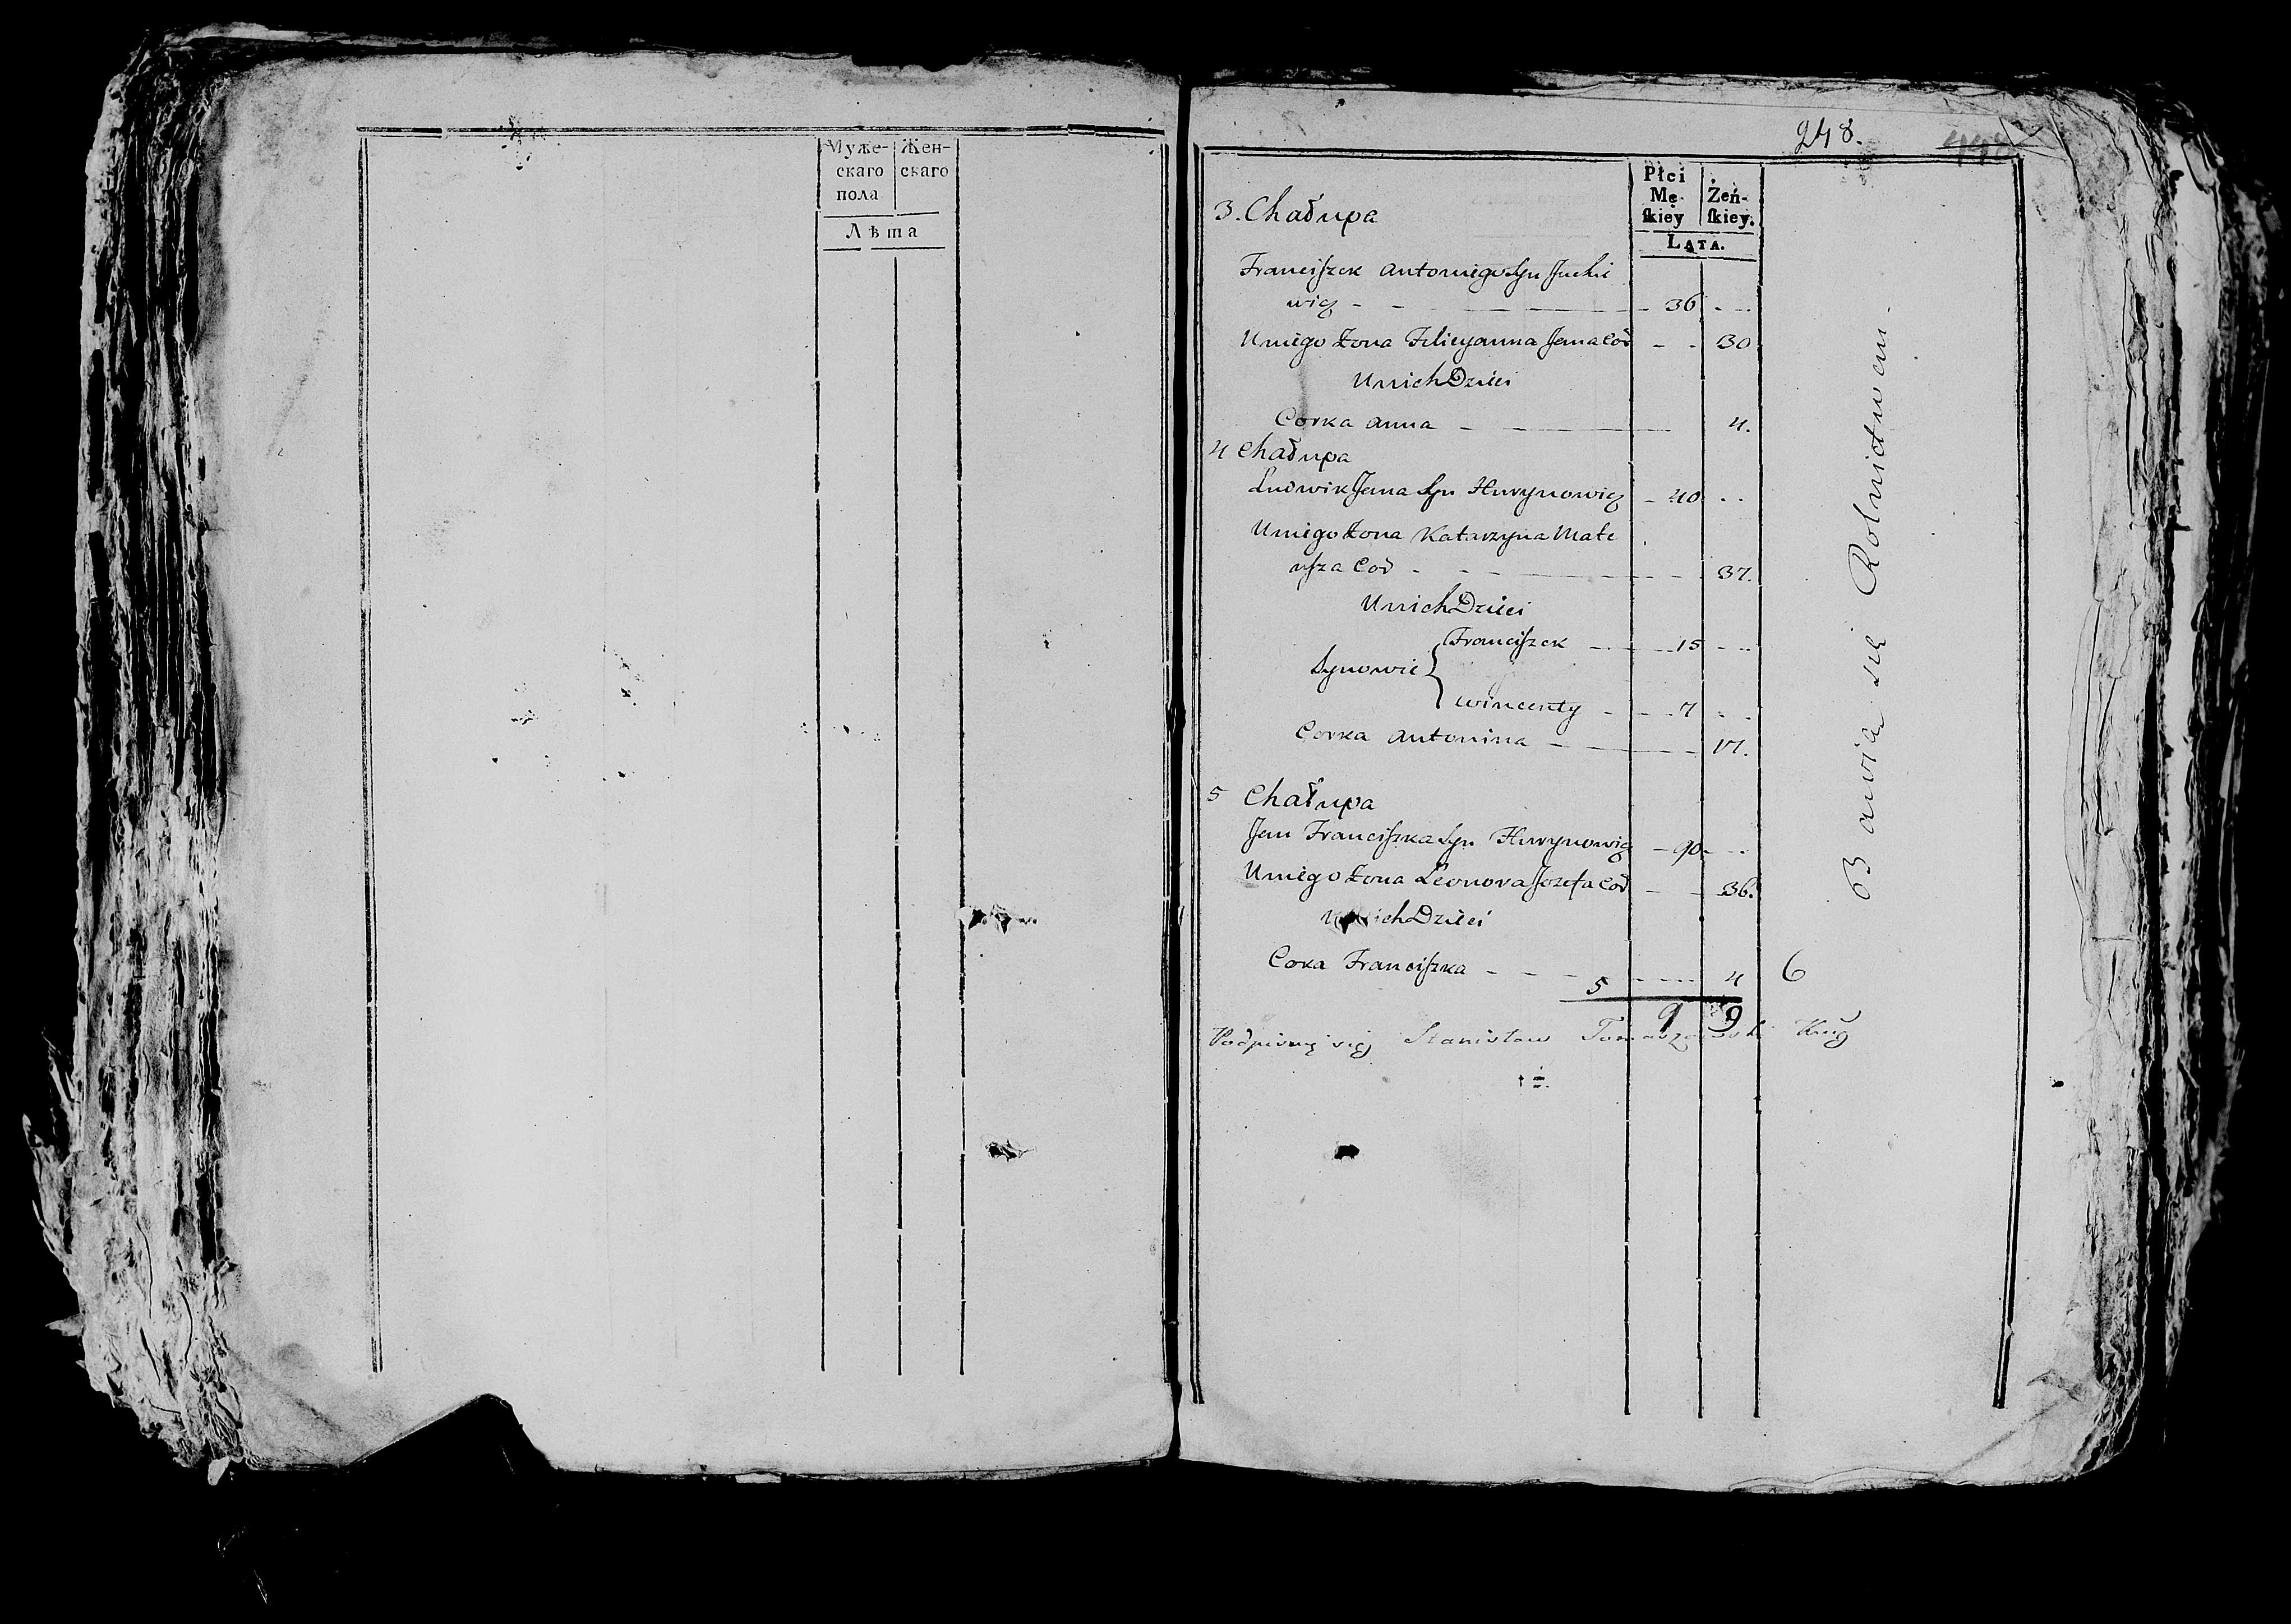 Муже-
скаго
пола
Жен-
скаго
Лѣта
248.
Płci
Mę-
skiey
Żeń-
skiey.
LATA.
3. Chałupa
Franciszek Antoniego Syn Juchi
wicz - - 36 - -
U niego Żona Felicyanna Jana Cór - - 30
U nich Dzieci
Corka Anna - 4.
4 Chałupa
Ludwik Jana Syn Hurynowicz - 40 - -
U niego Żona Katarzyna Mate
usza Cór - - - 37.
U nich Dzieci
Synowie { Franciszek - 15 - -
Wincenty - - 7 - -
Corka Antonina - 17.
5 Chałupa
Jan Franciszka Syn Hurynowicz - 90 - -
U niego Żona Leonora Jozefa Cór - - 36.
U nich Dzieci
Cora Franciszka - - - 4
5 6
9 9
Podpisuię się Stanisław
Bawią się Rolnictwem.